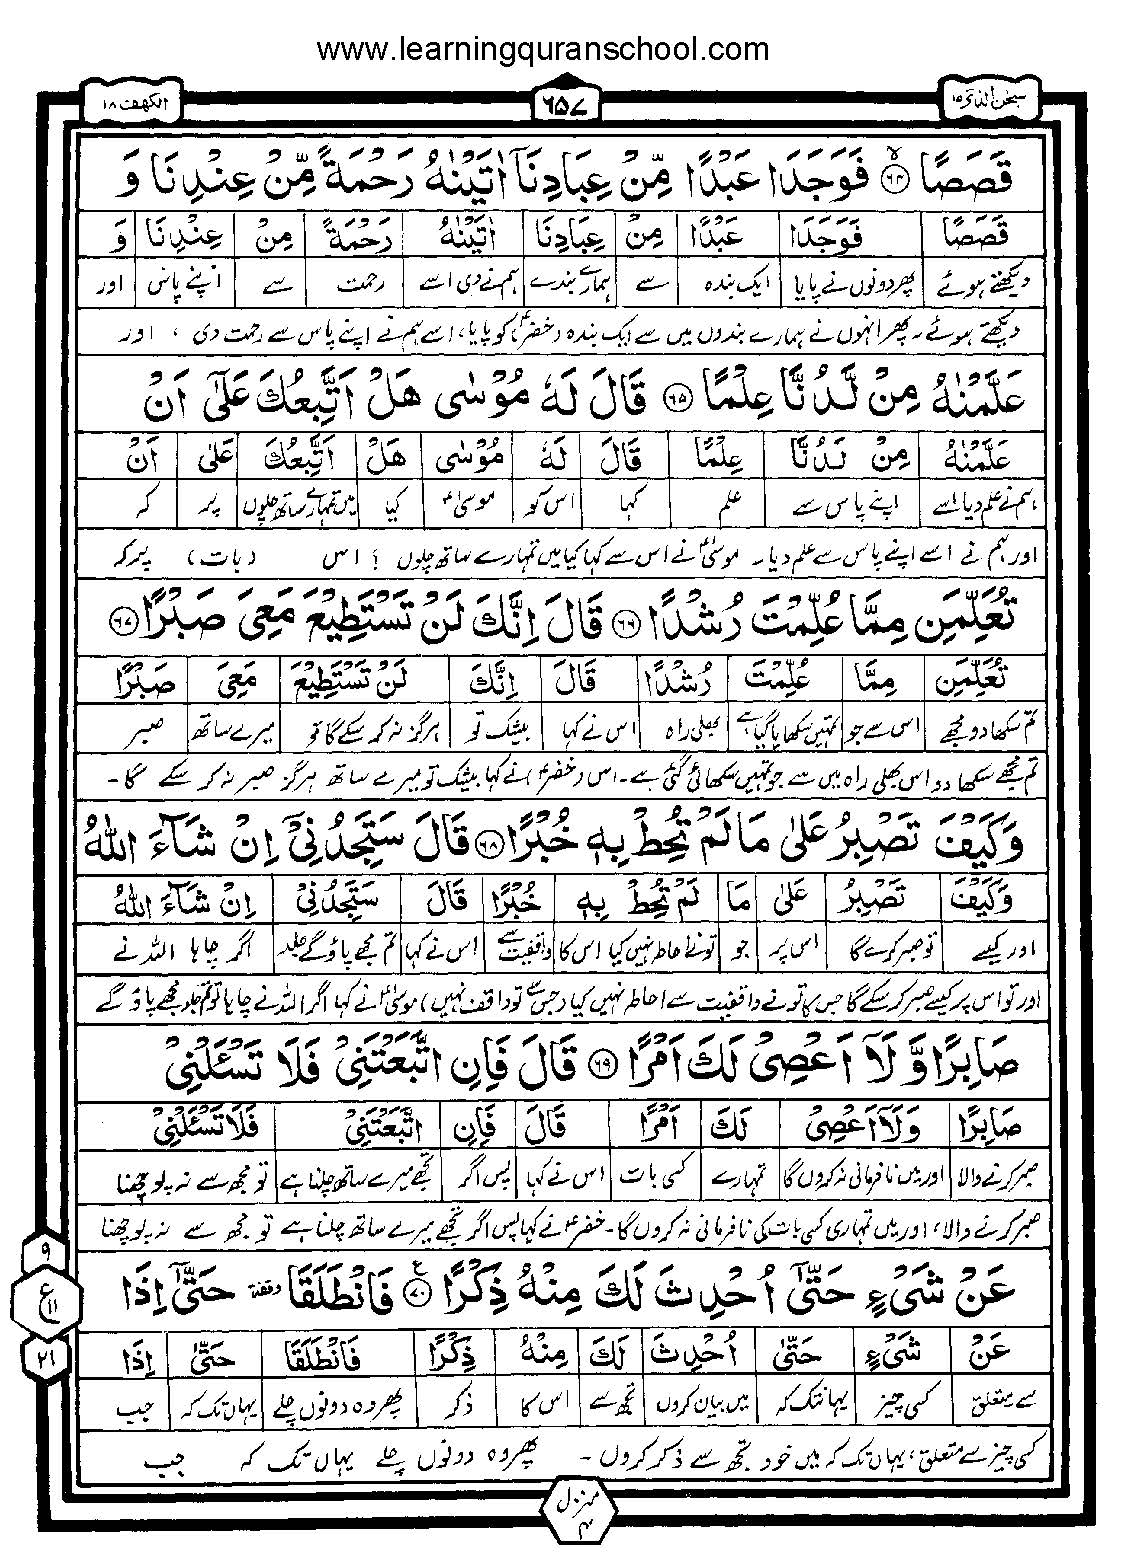 www.learningquranschool.com
سبحٰن الذی ۱۵
۶۵۷
الکهف ۱۸
قَصَصًا ﴿۶۴﴾ فَوَجَدَا عَبْدًا مِّنْ عِبَادِنَاۤ اٰتَیْنٰهُ رَحْمَةً مِّنْ عِنْدِنَا وَ
قَصَصًا فَوَجَدَا عَبْدًا مِنْ عِبَادِنَا اٰتَیْنٰهُ رَحْمَةً مِنْ عِنْدِنَا وَ
دیکھتے ہوئے پھر دونوں نے پایا ایک بندہ سے ہمارے بندے ہم نے دی اسے رحمت سے اپنے پاس اور
دیکھتے ہوئے۔ پھر انہوں نے ہمارے بندوں میں سے ایک بندہ (خضرؑ) کو پایا، اسے ہم نے اپنے پاس سے رحمت دی ، اور
عَلَّمْنٰهُ مِنْ لَّدُنَّا عِلْمًا ﴿۶۵﴾ قَالَ لَهٗ مُوْسٰى هَلْ اَتَّبِعُكَ عَلٰۤى اَنْ
عَلَّمْنٰهُ مِنْ لَدُنَّا عِلْمًا قَالَ لَهٗ مُوْسٰى هَلْ اَتَّبِعُكَ عَلٰى اَنْ
ہم نے علم دیا اسے اپنے پاس سے علم کہا اس کو موسیٰؑ کیا میں تمہارے ساتھ چلوں پر کہ
اور ہم نے اسے اپنے پاس سے علم دیا۔ موسیٰؑ نے اس سے کہا کیا میں تمہارے ساتھ چلوں ؟ اس (بات) پر کہ
تُعَلِّمَنِ مِمَّا عُلِّمْتَ رُشْدًا ﴿۶۶﴾ قَالَ اِنَّكَ لَنْ تَسْتَطِیْعَ مَعِیَ صَبْرًا ﴿۶۷﴾
تُعَلِّمَنِ مِمَّا عُلِّمْتَ رُشْدًا قَالَ اِنَّكَ لَنْ تَسْتَطِیْعَ مَعِیَ صَبْرًا
تم سکھا دو مجھے اس سے جو تمہیں سکھایا گیا ہے بھلی راہ اس نے کہا بیشک تو ہرگز نہ کر سکے گا تو میرے ساتھ صبر
تم مجھے سکھا دو اس بھلی راہ میں سے جو تمہیں سکھائی گئی ہے۔ اس (خضرؑ) نے کہا بیشک تو میرے ساتھ ہرگز صبر نہ کر سکے گا۔
وَكَیْفَ تَصْبِرُ عَلٰى مَا لَمْ تُحِطْ بِهٖ خُبْرًا ﴿۶۸﴾ قَالَ سَتَجِدُنِیْۤ اِنْ شَآءَ اللّٰهُ
وَكَیْفَ تَصْبِرُ عَلٰى مَا لَمْ تُحِطْ بِهٖ خُبْرًا قَالَ سَتَجِدُنِیْ اِنْ شَآءَ اللّٰهُ
اور کیسے تو صبر کرے گا اس پر جو تو نے احاطہ نہیں کیا اس کا واقفیت سے اس نے کہا تم مجھے پاؤ گے جلد اگر چاہا اللہ نے
اور تو اس پر کیسے صبر کر سکے گا جس کا تو نے واقفیت سے احاطہ نہیں کیا (جس سے تو واقف نہیں) موسیٰؑ نے کہا اگر اللہ نے چاہا تو تم جلد مجھے پاؤ گے
صَابِرًا وَّ لَاۤ اَعْصِیْ لَكَ اَمْرًا ﴿۶۹﴾ قَالَ فَاِنِ اتَّبَعْتَنِیْ فَلَا تَسْئَلْنِیْ
صَابِرًا وَلَاۤ اَعْصِیْ لَكَ اَمْرًا قَالَ فَاِنِ اتَّبَعْتَنِیْ فَلَا تَسْئَلْنِیْ
صبر کرنے والا اور میں نافرمانی نہ کروں گا تمہارے کسی بات اس نے کہا پس اگر تجھے میرے ساتھ چلنا ہے تو مجھ سے نہ پوچھنا
صبر کرنے والا، اور میں تمہاری کسی بات کی نافرمانی نہ کروں گا۔ خضرؑ نے کہا پس اگر تجھے میرے ساتھ چلنا ہے تو مجھ سے نہ پوچھنا
عَنْ شَیْءٍ حَتّٰۤى اُحْدِثَ لَكَ مِنْهُ ذِكْرًا ﴿۷۰﴾ فَانْطَلَقَا وقفة حَتّٰۤى اِذَا
عَنْ شَیْءٍ حَتّٰى اُحْدِثَ لَكَ مِنْهُ ذِكْرًا فَانْطَلَقَا حَتّٰى اِذَا
سے متعلق کسی چیز یہانتک کہ میں بیان کروں تجھ سے اس کا ذکر پھر وہ دونوں چلے یہاں تک کہ جب
کسی چیز سے متعلق، یہاں تک کہ میں خود تجھ سے ذکر کروں ۔ پھر وہ دونوں چلے یہاں تک کہ جب
۹
ع
۱۱
۲۱
منزل
۴